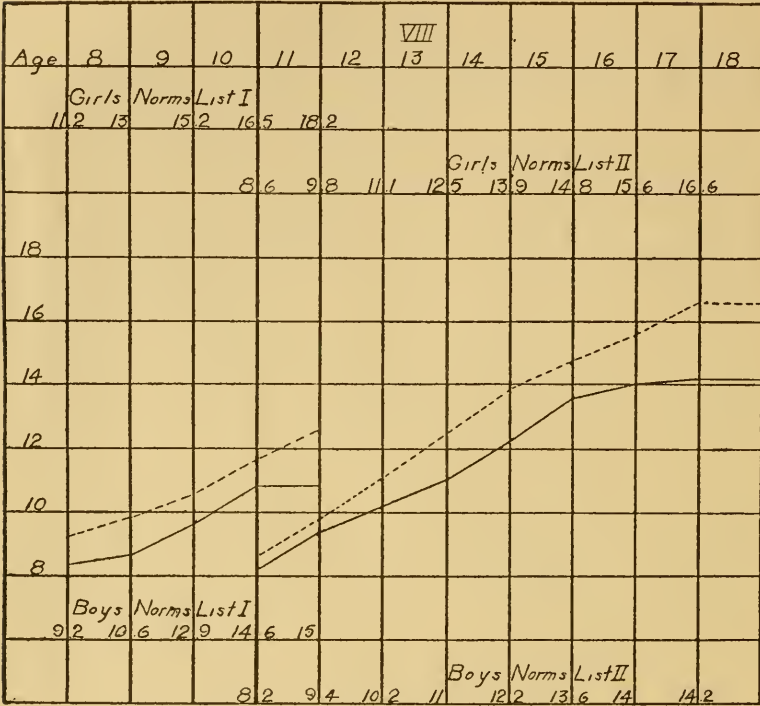 VIII
Age 8 9 10 11 12 13 14 15 16 17 18
Girls Norms List I
11.2 13 15.2 16.5 18.2
Girls Norms List II
8.6 9.8 11.1 12.5 13.9 14.8 15.6 16.6
18
16
14
12
10
8
Boys Norms List I
9.2 10.6 12.9 14.6 15
Boys Norms List II
8.2 9.4 10.2 11 12.2 13.6 14 14.2